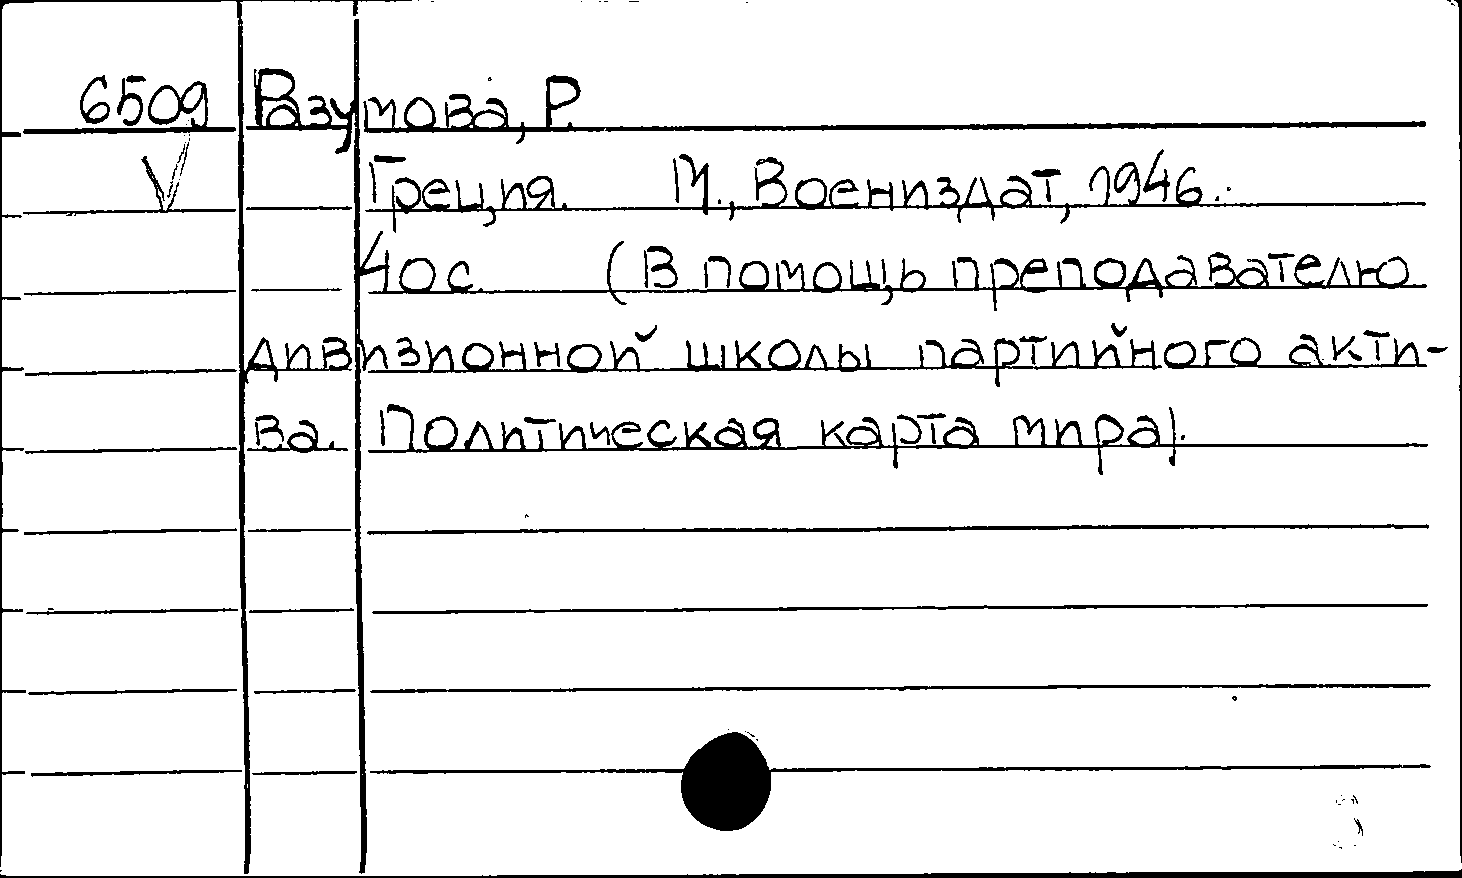 6509 Разумова, Р.
Греция. М., Воениздат, 1946.
40 с. (В помощь преподавателю
дивизионной школы партийного акти-
ва. Политическая карта мира).